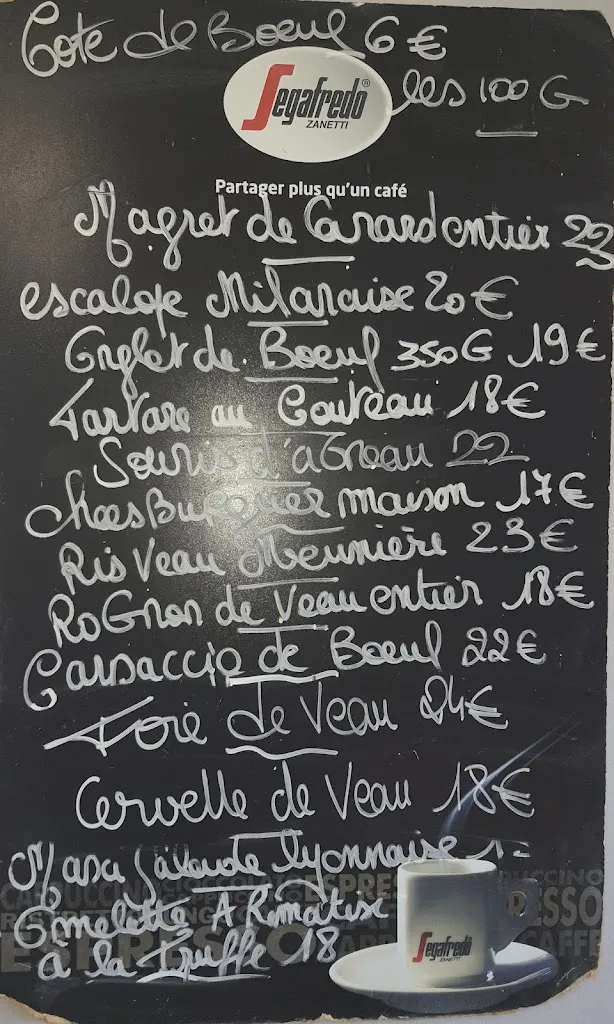 Cote de Boeuf 6€
Segafredo®
ZANETTI
les 100 G
Partager plus qu'un café
Magret de Canard entier 22
escalope Milanaise 20€
Onglet de Boeuf 350G 19€
Tartare au Couteau 18€
Souris d'aGneau 22
cheesBurguer maison 17€
Ris Veau Meunière 23€
RoGnon de Veau entier 18€
Carpaccio de Boeuf 22€
Foie de Veau 24€
Cervelle de Veau 18€
Maxi Salade lyonnaise
Omelette ARomatisé
à la Truffe 18
CAPPUCCINO
ESPRESSO
Segafredo
ZANETTI